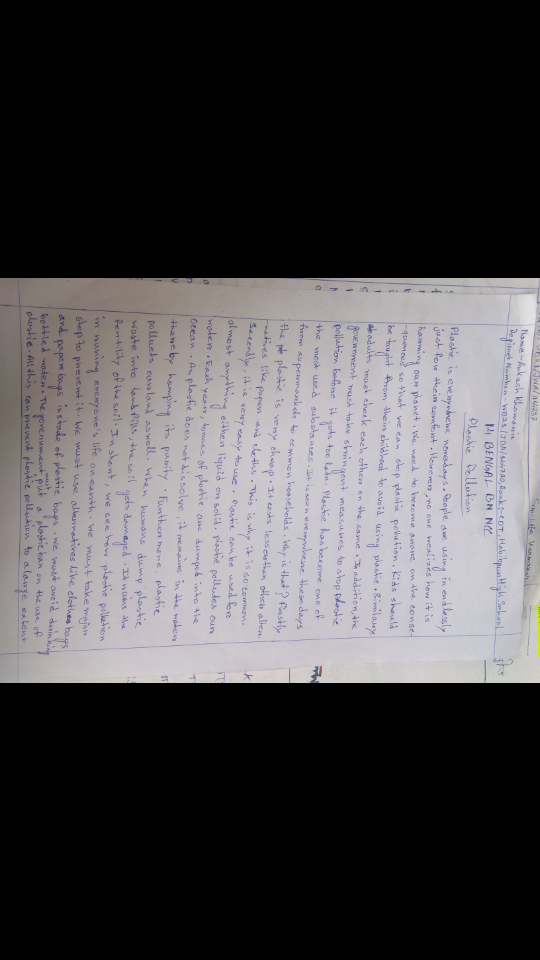 Name - Ankush Khamaru
Plastic Pollution
11 BENGAL BN NCC
Plastic is everywhere nowadays. People are using in endlessly
just for their comfort. However, no one realizes how it is
harming our planet. We need to become aware on the conse-
quences so that we can stop plastic pollution. Kids should
be taught from their childhood to avoid using plastic. Similarly
adults must check each other on the same. In addition, the
government must take stringent measures to stop plastic
pollution before it gets too late. Plastic has become one of
the most used substances. It is seen everywhere these days
form supermarkets to common households. Why is that? Firstly
the plastic is very cheap. It costs lesser than other alter
-natives like paper and cloths. This is why it is so common.
Secondly, it is very easy to use. Plastic can be used for
almost anything either liquid or solid. plastic pollutes our
water. Each year, tonnes of plastic are dumped into the
Ocean. As plastic does not dissolve, it remains in the water
thereby hamping its purity. Furthermore, plastic
pollutes our land as well. When humans dump plastic
waste into landfills, the soil gets damaged. It ruins the
fertility of the soil. In short, we see how plastic pollution
in ruining everyone's life on earth. We must take major
step to prevent it. We must use alternatives like cloths bags
and paper bags instead of plastic bags. We must avoid drinking
bottled water. The government must put a plastic ban on the use of
plastic. All this can prevent plastic pollution to a large extent